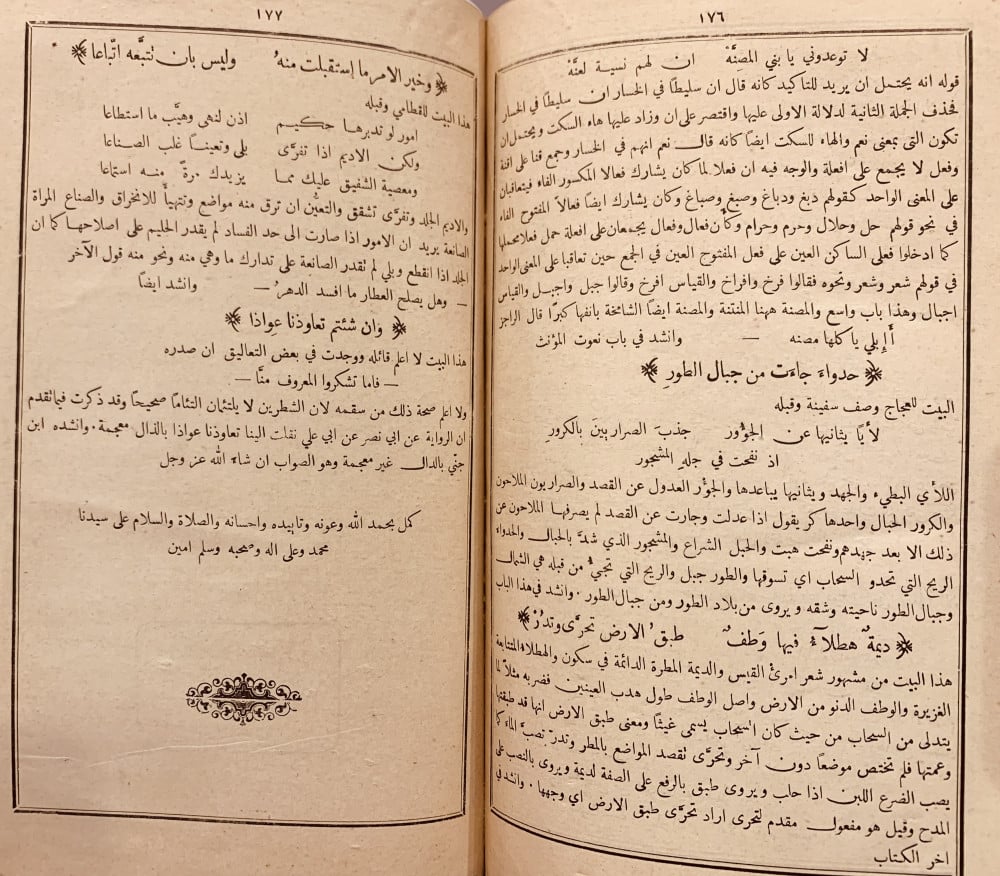 ١٧٦
لا توعدوني يا بني المصِنَّهْ ان لهم نسية لعنَّهْ
قوله انه يحتمل ان يريد للتاكيد كانه قال ان سليطًا في الخسار ان سليطًا في الخسار
فحذف الجملة الثانية لدلالة الاولى عليها واقتصر على ان وزاد عليها هاء السكت ويحتمل ان
تكون التى بمعنى نعم والهاء للسكت ايضًا كانه قال نعم انهم في الخسار وجمع قنا على اقنة
وفعل لا يجمع على افعلة والوجه فيه ان فعلا لما كان يشارك فعالا المكسور الفاء فيتعاقبان
على المعنى الواحد كقولهم دبغ ودباغ وصبغ وصباغ وكان يشارك ايضًا فعالاً المفتوح الفاء
في نحو قولهم حل وحلال وحرم وحرام وكأَن فعال وفعال يجمعان على افعلة حمل فعلا محملها
كما ادخلوا فعلى الساكن العين على فعل المفتوح العين في الجمع حين تعاقبا على المعنى الواحد
في قولهم شعر وشعر ونحوه فقالوا فرخ وافراخ والقياس افرخ وقالوا جبل واجبل والقياس
اجبال وهذا باب واسع والمصنة ههنا المنتنة والمصنة ايضًا الشامخة بانفها كبرًا قال الراجز
أَإبلي ياكلها مصنه — وانشد في باب نعوت المؤنث
حدواءَ جاءَت من جبال الطورِ
البيت للعجاج وصف سفينة وقبله
لأياً يثانيها عن الجؤور جذبَ الصراريين بالكرورِ
اذ نفحت في جله المشجور
اللأي البطيء والجهد ويثانيها يباعدها والجؤر العدول عن القصد والصراريون الملاحون
والكرور الحبال واحدها كر يقول اذا عدلت وجارت عن القصد لم يصرفها الملاحون عن
ذلك الا بعد جهدهم ونفحت هبت والجل الشراع والمشجور الذي شدَّ بالحبال والحدواء
الريح التي تحدو السحاب اي تسوقها والطور جبل والريح التي تجيءُ من قبله هي الشمال
وجبال الطور ناحيته وشقه ويروى من بلاد الطور ومن جبال الطور. وانشد في هذا الباب
ديمةٌ هطلآءُ فيها وَطَفٌ طبقُ الارض تحرَّى وتَدُرْ
هذا البيت من مشهور شعر امرئ القيس والديمة المطرة الدائمة في سكون والهطلاء المتتابعة
الغزيرة والوطف الدنو من الارض واصل الوطف طول هدب العينين فضربه مثلاً لما
يتدلى من السحاب من حيث كان السحاب يسمى غيثًا ومعنى طبق الارض انها قد طبقتها
وعمتها فلم تختص موضعًا دون آخر وتحرَّى تقصد المواضع بالمطر وتدرّ تصبّ الماء كما
يصب الضرع اللبن اذا حلب ويروى طبق بالرفع على الصفة لديمة ويروى بالنصب على
المدح وقيل هو مفعول مقدم لتحرى اراد تحرَّى طبق الارض اي وجهها. وانشد في
اخر الكتاب
١٧٧
وخير الامر ما استقبلت منهُ وليس بان تتبَّعه اتّباعا
هذا البيت للقطامي وقبله
امور لو تدبرها حكيم اذن لنهى وهيَّب ما استطاعا
ولكن الاديم اذا تفرَّى بلى وتعينًا غلب الصناعا
ومعصية الشفيق عليك مما يزيدك مرةً منه استماعا
والاديم الجلد وتفرَّى تشقق والتعيُّن ان ترق منه مواضع وتتهيأ للانخراق والصناع المراة
الصانعة يريد ان الامور اذا صارت الى حد الفساد لم يقدر الحليم على اصلاحها كما ان
الجلد اذا انقطع وبلي لم تقدر الصانعة على تدارك ما وهي منه ونحو منه قول الآخر
— وهل يصلح العطار ما افسد الدهرُ — وانشد ايضًا
وان شئتم تعاوذنا عِواذا
هذا البيت لا اعلم قائله ووجدت في بعض التعاليق ان صدره
— فاما تشكروا المعروف منَّا —
ولا اعلم صحة ذلك من سقمه لان الشطرين لا يلتئمان التئامًا صحيحًا وقد ذكرت فيما تقدم
ان الرواية عن ابي نصر عن ابي علي نقلت الينا تعاوذنا عواذا بالذال معجمة. وانشده ابن
جنّي بالدال غير معجمة وهو الصواب ان شاءَ الله عز وجل
كمل بحمد الله وعونه وتاييده واحسانه والصلاة والسلام على سيدنا
محمد وعلى اله وصحبه وسلم امين